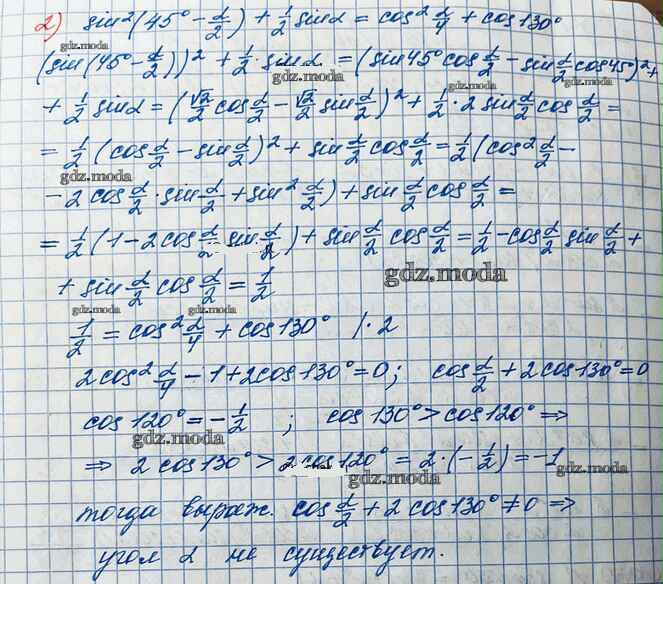 2) sin²(45° - α/2) + 1/2 sinα = cos² α/4 + cos130°
gdz.moda
(sin(45° - α/2))² + 1/2 · sin α = (sin45° cos α/2 - sin α/2 cos45°)² +
gdz.moda
+ 1/2 sinα = (√2/2 cos α/2 - √2/2 sin α/2)² + 1/2 · 2 sin α/2 cos α/2 =
= 1/2 (cos α/2 - sin α/2)² + sin α/2 cos α/2 = 1/2 (cos² α/2 -
gdz.moda
- 2 cos α/2 · sin α/2 + sin² α/2) + sin α/2 cos α/2 =
gdz.moda
= 1/2 (1 - 2 cos α/2 sin α/2) + sin α/2 cos α/2 = 1/2 - cos α/2 sin α/2 +
+ sin α/2 cos α/2 = 1/2
gdz.moda
gdz.moda gdz.moda
1/2 = cos² α/4 + cos130° /· 2
2cos² α/4 - 1 + 2cos130° = 0; cos α/2 + 2cos130° = 0
cos120° = - 1/2 ; cos130° > cos120° ⇒
gdz.moda gdz.moda
⇒ 2 cos130° > 2 cos120° = 2·(- 1/2) = -1
gdz.moda gdz.moda
тогда выраж. cos α/2 + 2 cos130° ≠ 0 ⇒
gdz.moda
угол α не существует.